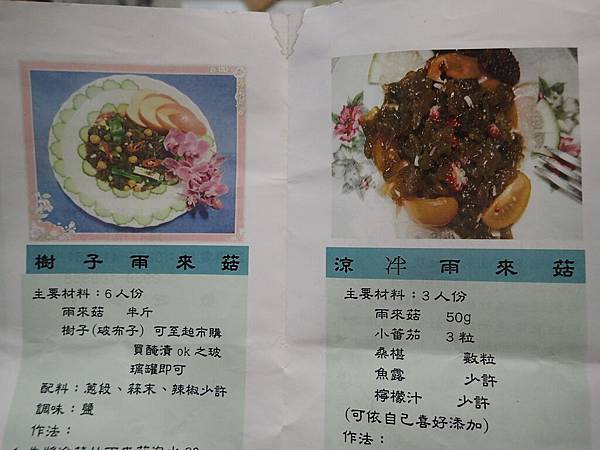 樹子雨來菇
主要材料：6人份
雨來菇 半斤
樹子(破布子) 可至超市購
買醃漬ok之玻
璃罐即可
配料：蔥段、蒜末、辣椒少許
調味：鹽
作法：
涼拌雨來菇
主要材料：3人份
雨來菇 50g
小蕃茄 3粒
桑椹 數粒
魚露 少許
檸檬汁 少許
(可依自己喜好添加)
作法：